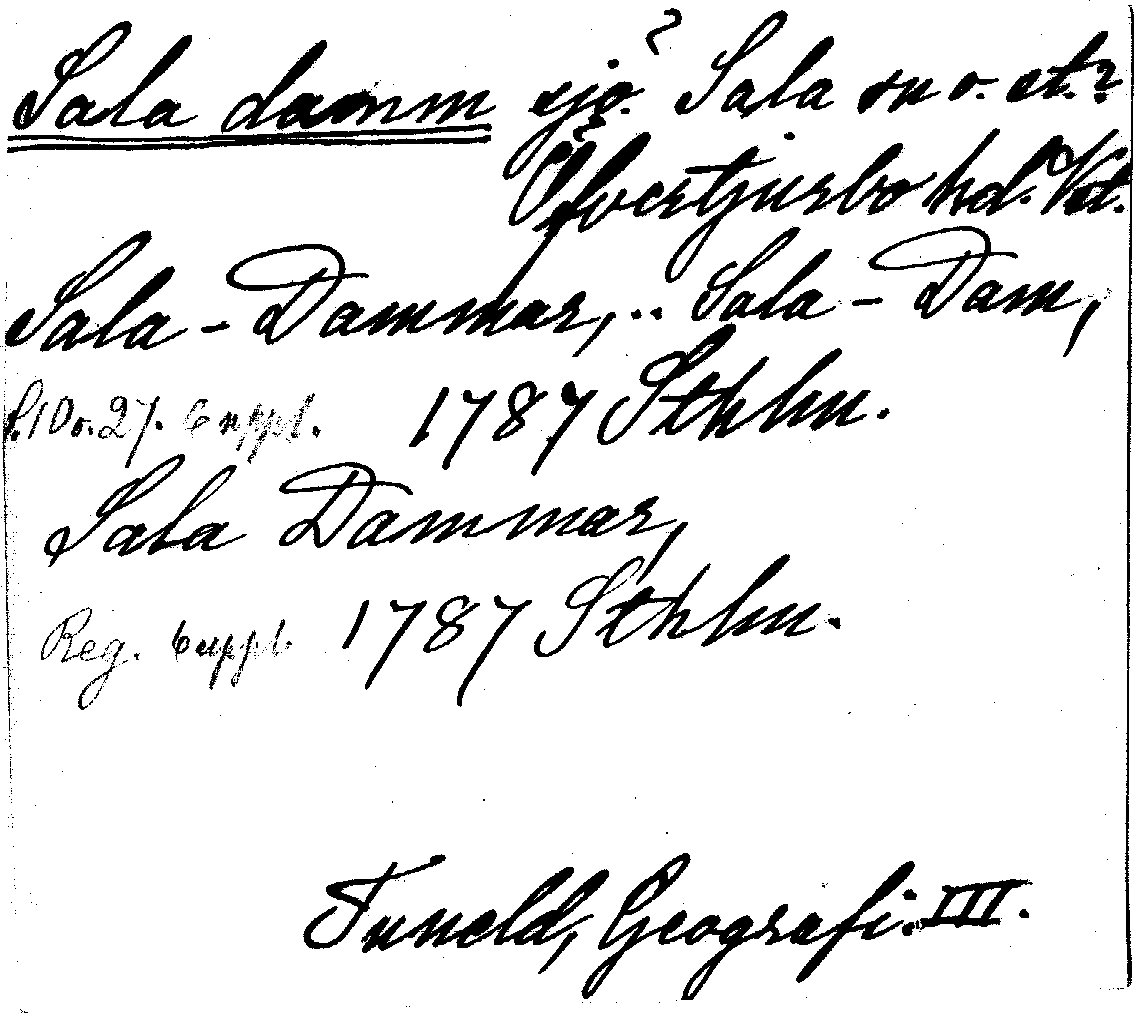 ?
Sala damm sjö. Sala sn o. st.?
Övertjurbo hd. Vstm.
Sala-Dammar, .. Sala-Dam,
s. 10 o. 27. Suppl. 1787 Sthlm.
Sala Dammar,
Reg. Suppl. 1787 Sthlm.
Tuneld, Geografi. III.